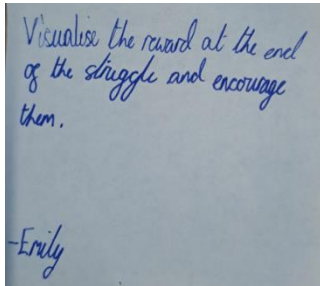 Visualise the reward at the end
of the struggle and encourage
them.
-Emily